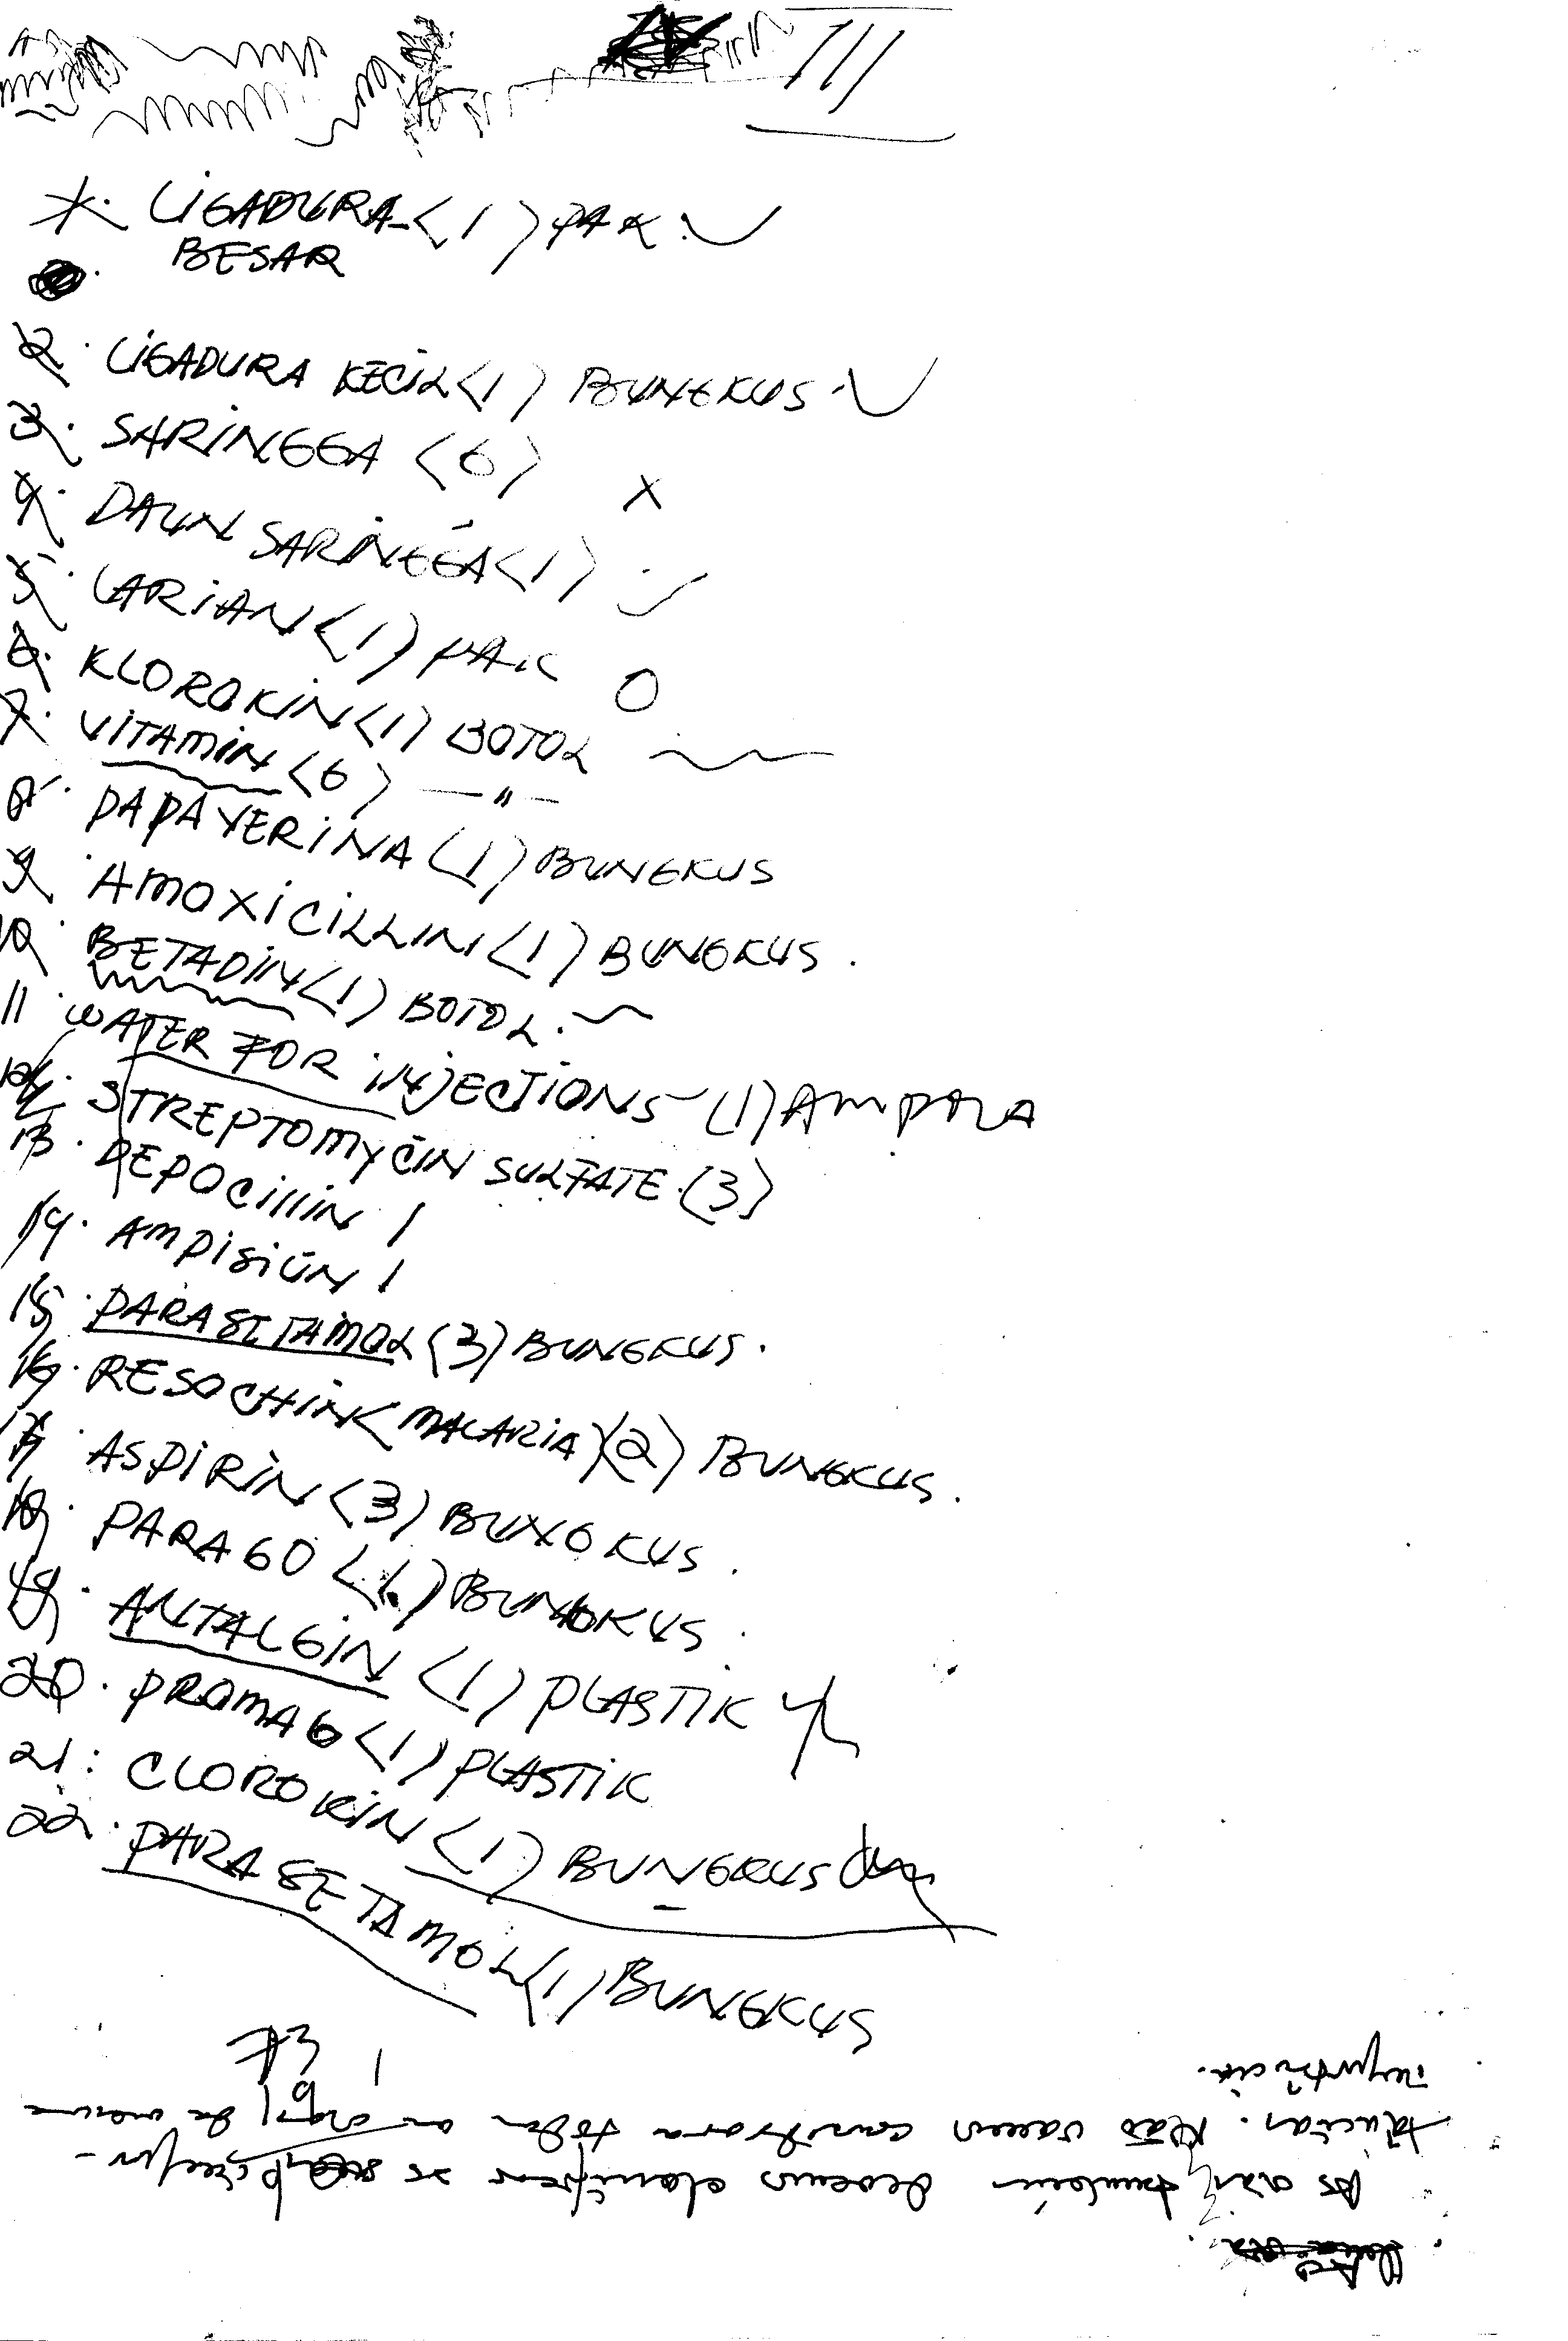 III
1. LIGADURA (1) PAK.
BESAR
2. LIGADURA KECIL (1) BUNGKUS.
3. SARINGGA (6) X
4. DAUN SARINGGA (1)
5. LARIAN (1) PAK O
6. KLOROKIN (1) BOTOL
7. VITAMIN (6) — " —
8. PAPAVERINA (1) BUNGKUS
9. AMOXICILLIN (1) BUNGKUS.
10. BETADIN (1) BOTOL.
11. WATER FOR INJECTIONS (1) AMPOLA
12. STREPTOMYCIN SULFATE. (3)
13. DEPOCILLIN 1
14. AMPISILIN 1
15. PARASETAMOL (3) BUNGKUS.
16. RESOCHIN (MALARIA) (2) BUNGKUS.
17. ASPIRIN (3) BUNGKUS.
18. PARAGO (1) BUNGKUS.
19. ANTALGIN (1) PLASTIK
20. PROMAG (1) PLASTIK
21: CLOROKIN (1) BUNGKUS
22. PARASETAMOL (1) BUNGKUS
devemos clarificar se
. Não vamos